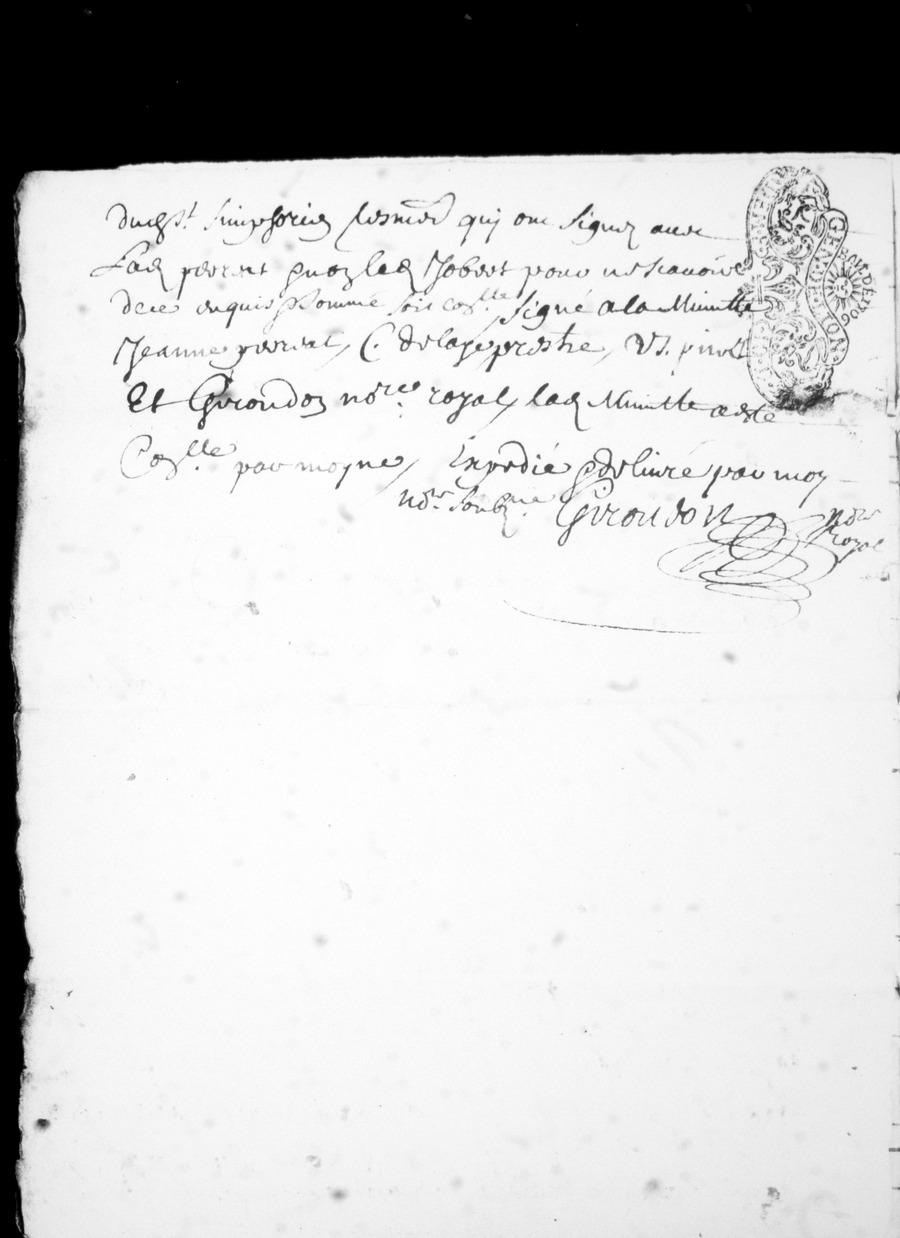 dud St. Simphorien lesmes qui ont signez avec
Lad perret Jobert pour ne scavoir
de ce enquis & somme soit conlle. Signé a la Minutte
Jeanne perret, C. Delaye prestre, pinet
Et Girondon nore. royal, lad Minutte a esté
Conlle. par moyne, Expedié & delivré par moy
nore. soubne Girondon nore
royal
GEN. DE LION